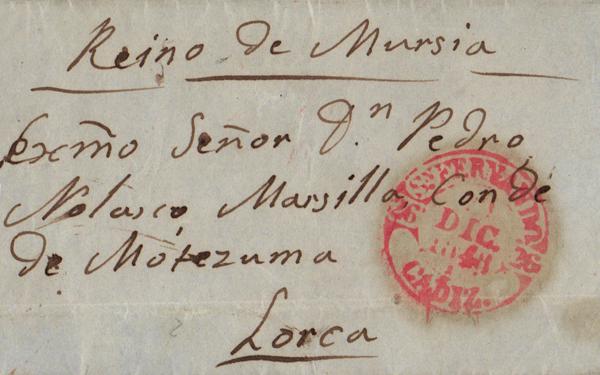 Reino de Mursia
exmo Señor Dn. Pedro
Nolasco Marsilla, Conde
de Mótezuma
Lorca
S. FERNANDO
DIC.
CADIZ.